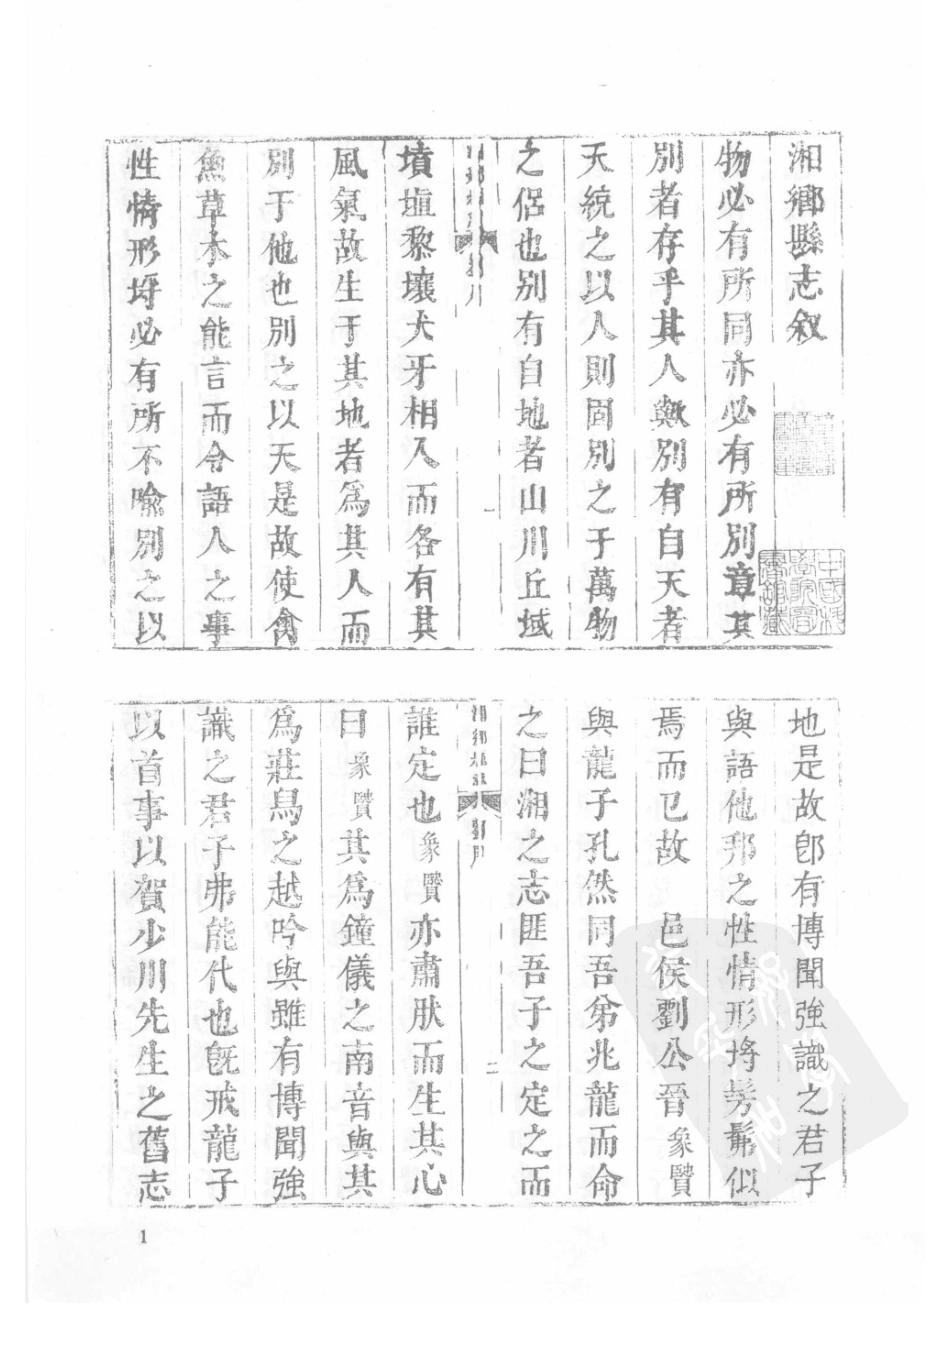 湘鄉縣志叙
物必有所同亦必有所別章其
別者存乎其人歟別有自天者
天統之以人則固別之于萬物
之侶也別有自地者山川丘域
墳壚黎壤犬牙相入而各有其
風氣故生于其地者為其人而
別于他也別之以天是故使禽
魚草木之能言而令語人之事
性情形埓必有所不喻別之以
地是故卽有博聞強識之君子
與語他邦之性情形埓髣髴似
焉而已故 邑侯劉公晉象賢
與龍子孔然同吾弟兆龍而命
之曰湘之志匪吾子之定之而
二
誰定也象賢亦肅肰而生其心
曰象賢其為鐘儀之南音與其
為莊舃之越吟與雖有博聞強
識之君子弗能代也旣戒龍子
以首事以賀少川先生之舊志
1